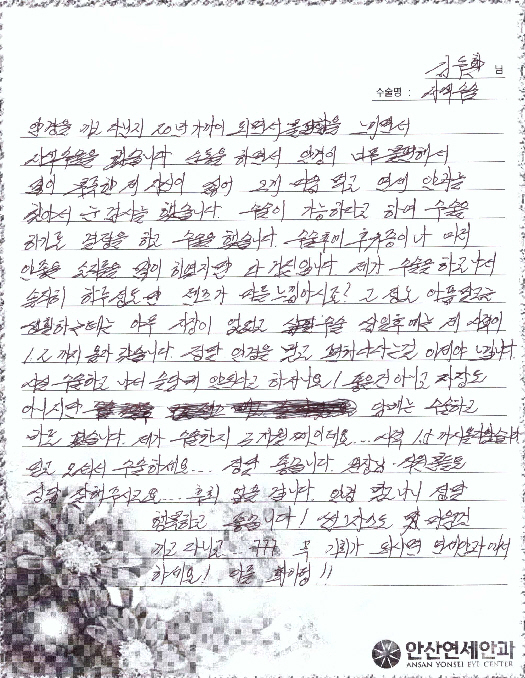 님
수술명 : 시력수술
안경을 끼고 다닌지 20년 가까이 되면서 불편함을 느끼면서
시력수술을 했습니다 운동을 하면서 안경이 너무 불편해서
제 자신이 싫어 크게 마음 먹고 연세 안과를
찾아서 눈 검사를 했습니다. 수술이 가능하다고 하여 수술을
하기로 결정을 하고 수술을 했습니다. 수술후에 후유증이나 여러
안좋은 소리를 많이 하였지만 다 거짓입니다 제가 수술을 하고 나서
솔직히 하루정도만 렌즈가 그 정도 아픔 말고는
생활하는데는 아무 지장이 없었고 수술 삼일후에는 제 시력이
1.2 까지 올라 갔습니다. 정말 안경을 벗고 편하다는걸 이제야 느낍니다.
수술하고 나서 술담배 안된다고 하시나요! 좋은건 아니고 지장도
아니지만 담배는 수술하고
바로 폈습니다. 제가 수술한지 2개월 째이데요... 시력 1.5까지
믿고 오셔서 수술하세요... 정말 좋습니다. 원장님 직원분들도
정말 잘해주시고요.... 후회 없을 겁니다. 안경 벗고나니 정말
행복하고 좋습니다! 썬그라스도
끼고 다니고 ㅋㅋㅋ 꼭 기회가 되시면 연세안과에서
하세요! 다들 화이팅!!
안산연세안과
ANSAN YONSEI EYE CENTER